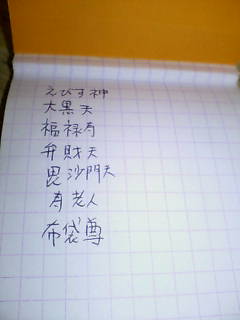 えびす神
大黒天
福禄寿
弁財天
毘沙門天
寿老人
布袋尊